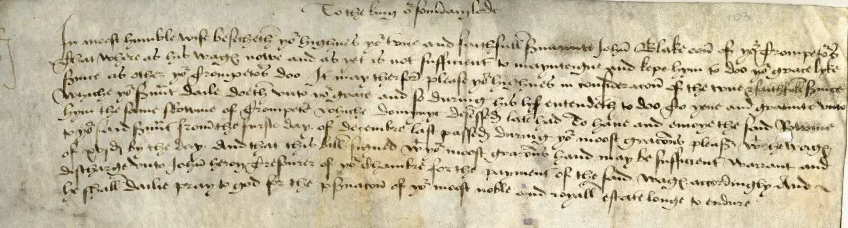 To the king or souerain lorde
In moost humble wise besecheth yor highnes yor true and faithfull sruaunt John Blake oon of yor trompetes
That where as his wage nowe and as yet is not sufficient to maynteigne and kepe hym to doo yor grace like
sruice as other yor trompetes doo It may therfor please yor highnes in consideracon of the true & faithfull sruice
whiche yor sruunt daile doeth vnto yor grace and so during his lyf entendeth to doo to yeue and graunte vnto
hym the same Rowme of trompete whiche domynyc decessed late had To haue and enioye the said Rowme
to yor said sruunt from the furste day of decembre last passed during yor moost gracious pleasr wt the wage
of by the day And that this bill signed wt yor moost gracious hand may be sufficient warrant and
discharge vnto John heron tresourer of yor chambre for the payment of the said wage accordingly And
he shall dailie pray to god for the prseruacon of yor moost noble and royall estate longe to endure